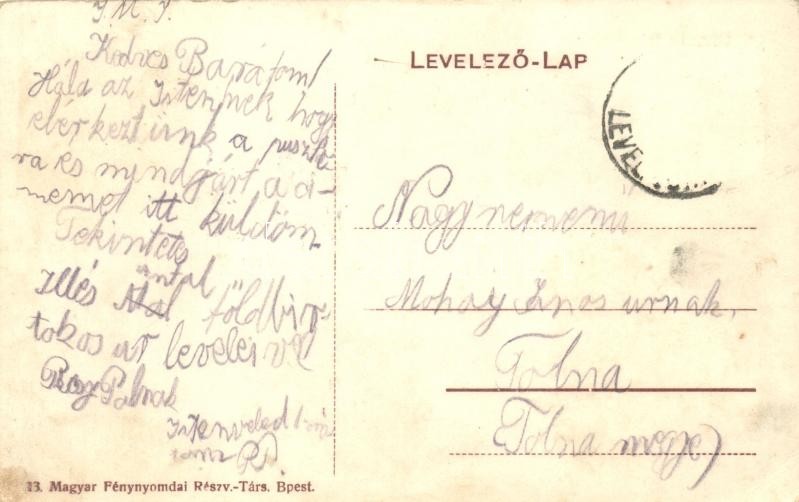 J. M. J.
Kedves Barátom!
Hála az Istennek hogy
elérkeztünk a puszká
ra és mindjárt a ci-
memet itt küldöm
Tekintetes
Antal
Illés földbir-
tokos ur leveleivel
Pálnak
Istenveled
LEVELEZŐ-LAP
LEVEL
Nagy
Mohay János urnak.
Tolna
(Tolna megye)
13. Magyar Fénynyomdai Részv.-Társ. Bpest.